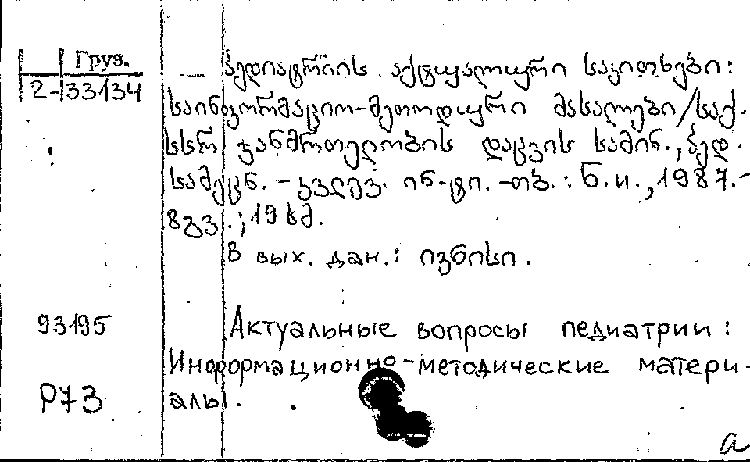 Груз.
2-33134
პედიატრიის აქტუალური საკითხები:
საინფორმაციო-მეთოდური მასალები/საქ.
სსრ ჯანმრთელობის დაცვის სამინ., პედ.
სამეცნ.-კვლევ. ინ-ტი.-თბ.: Б.и., 1987.-
8გვ.; 19სმ.
В вых. дан.: ივნისი.
93195
Актуальные вопросы педиатрии:
Информационно-методические матери-
Р73
алы.
а